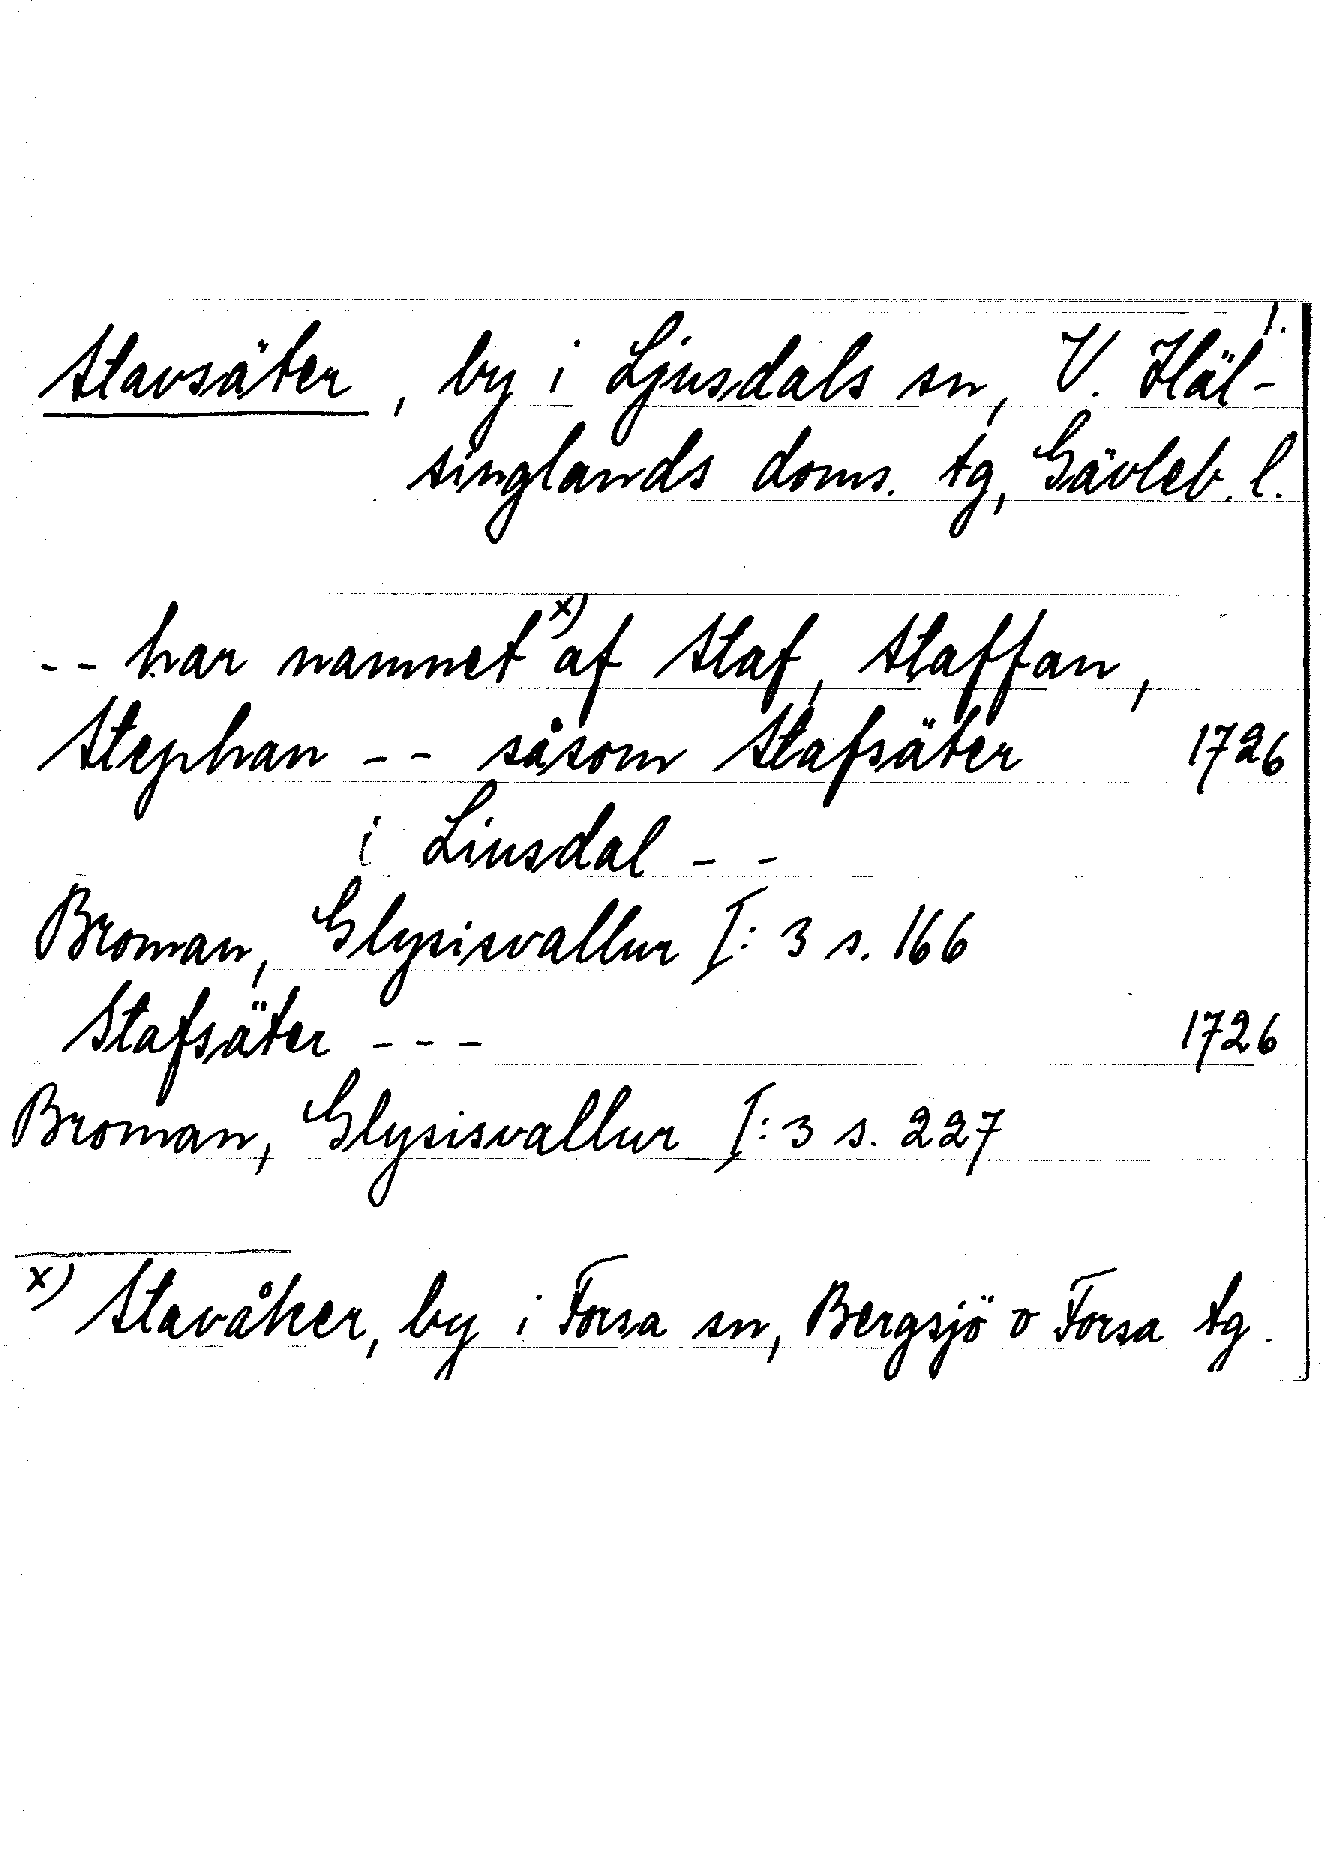 1.
Stavsäter, by i Ljusdals sn, V. Häl-
singlands doms. tg, Gävleb. l.
-- har namnet x) af Staf, Staffan,
Stephan -- såsom Stafsäter 1726
i Liusdal --
Broman, Glysisvallur I: 3 s. 166
Stafsäter --- 1726
Broman, Glysisvallur I: 3 s. 227
x) Stavåker, by i Forsa sn, Bergsjö o Forsa tg.